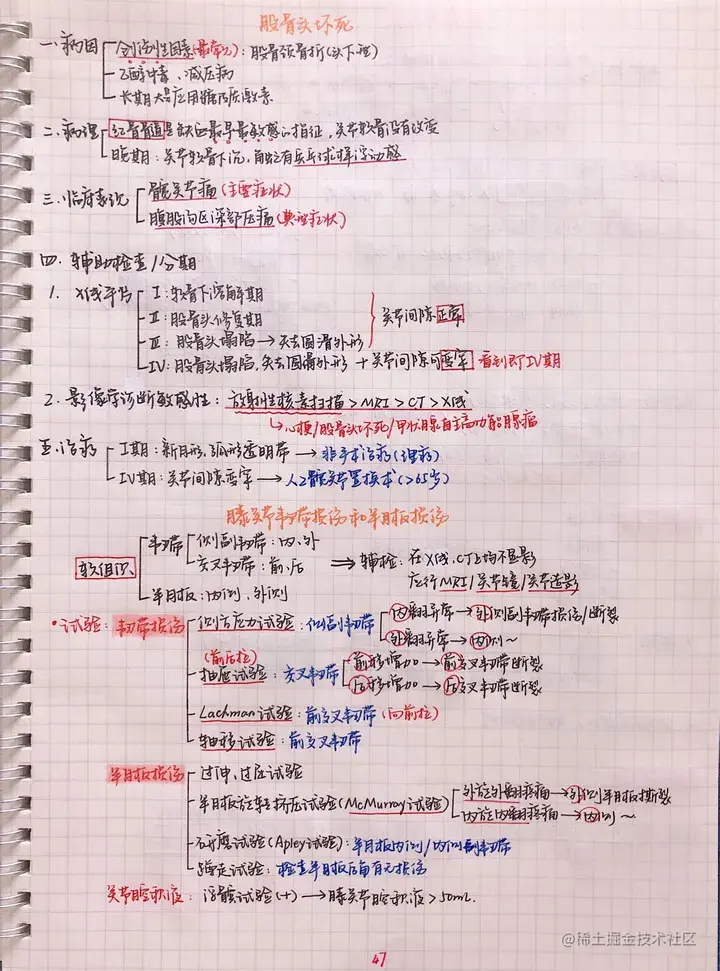 股骨头坏死
一、病因 创伤性因素(最常见)：股骨颈骨折(头下型)
乙醇中毒、减压病
长期大量应用糖皮质激素
二、病理 红骨髓是缺血最早最敏感的指征，关节软骨没有改变
晚期：关节软骨下沉，触之有乒乓球样浮动感
三、临床表现 髋关节痛(主要症状)
腹股沟区深部压痛(典型症状)
四、辅助检查/分期
1. X线平片 I：软骨下溶解期
II：股骨头修复期
III：股骨头塌陷→失去圆滑外形
关节间隙正常
IV：股骨头塌陷，失去圆滑外形+关节间隙可变窄 看到即IV期
2. 影像学诊断敏感性：放射性核素扫描>MRI>CT>X线
→心梗/股骨头坏死/甲状腺自主高功能腺瘤
五、治疗 I期：新月形、弧形透明带→非手术治疗(理疗)
IV期：关节间隙变窄→人工髋关节置换术(>65岁)
膝关节韧带损伤和半月板损伤
软组织 韧带 侧副韧带：内、外
交叉韧带：前、后 ⇒辅检：在X线、CT上均不显影
应行MRI/关节镜/关节造影
半月板：内侧、外侧
•试验：韧带损伤 侧方应力试验：侧副韧带 内翻异常→外侧副韧带损伤/断裂
外翻异常→内侧~
(前后拉)
抽屉试验：交叉韧带 前移增加→前交叉韧带断裂
后移增加→后交叉韧带断裂
Lachman试验：前交叉韧带(向前拉)
轴移试验：前交叉韧带
半月板损伤 过伸、过屈试验
半月板旋转挤压试验(McMurray试验) 外旋外翻疼痛→外侧半月板撕裂
内旋内翻疼痛→内侧~
研磨试验(Apley试验)：半月板内侧/内侧副韧带
蹲走试验：检查半月板后角有无损伤
关节腔积液：浮髌试验(+)→膝关节腔积液>50mL.
47
@稀土掘金技术社区